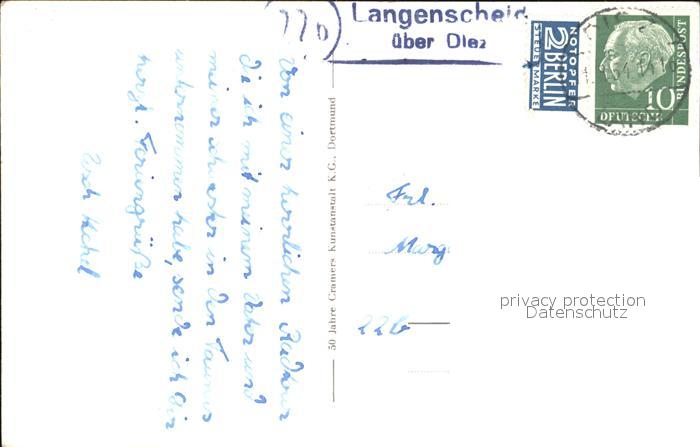 (22b)
Langenscheid
über Diez
NOTOPFER
2 BERLIN
STEUERMARKE
10
DEUTSCHE
BUNDESPOST
Von einer herrlichen Radtour
die ich mit meinem Vater und
meiner Schwester in den Taunus
unternommen habe, sende ich Dir
herzl. Feriengrüße
50 Jahre Cramers Kunstanstalt K.G., Dortmund
Frl.
Marg
22b
privacy protection
Datenschutz